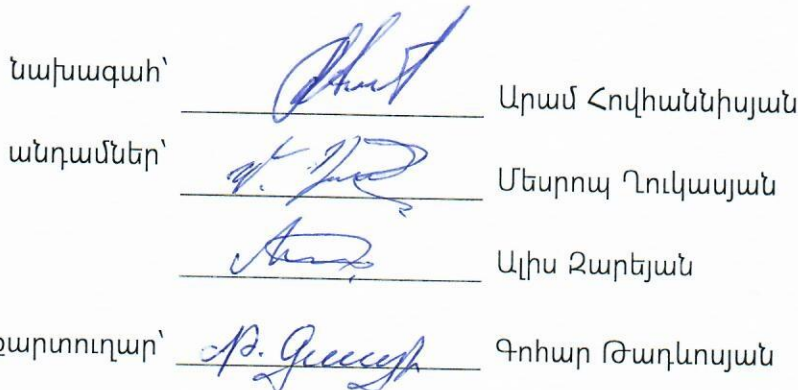 նախագահ՝ Արամ Հովհաննիսյան
անդամներ՝ Մեսրոպ Ղուկասյան
Ալիս Զարեյան
քարտուղար՝ Գոհար Թադևոսյան